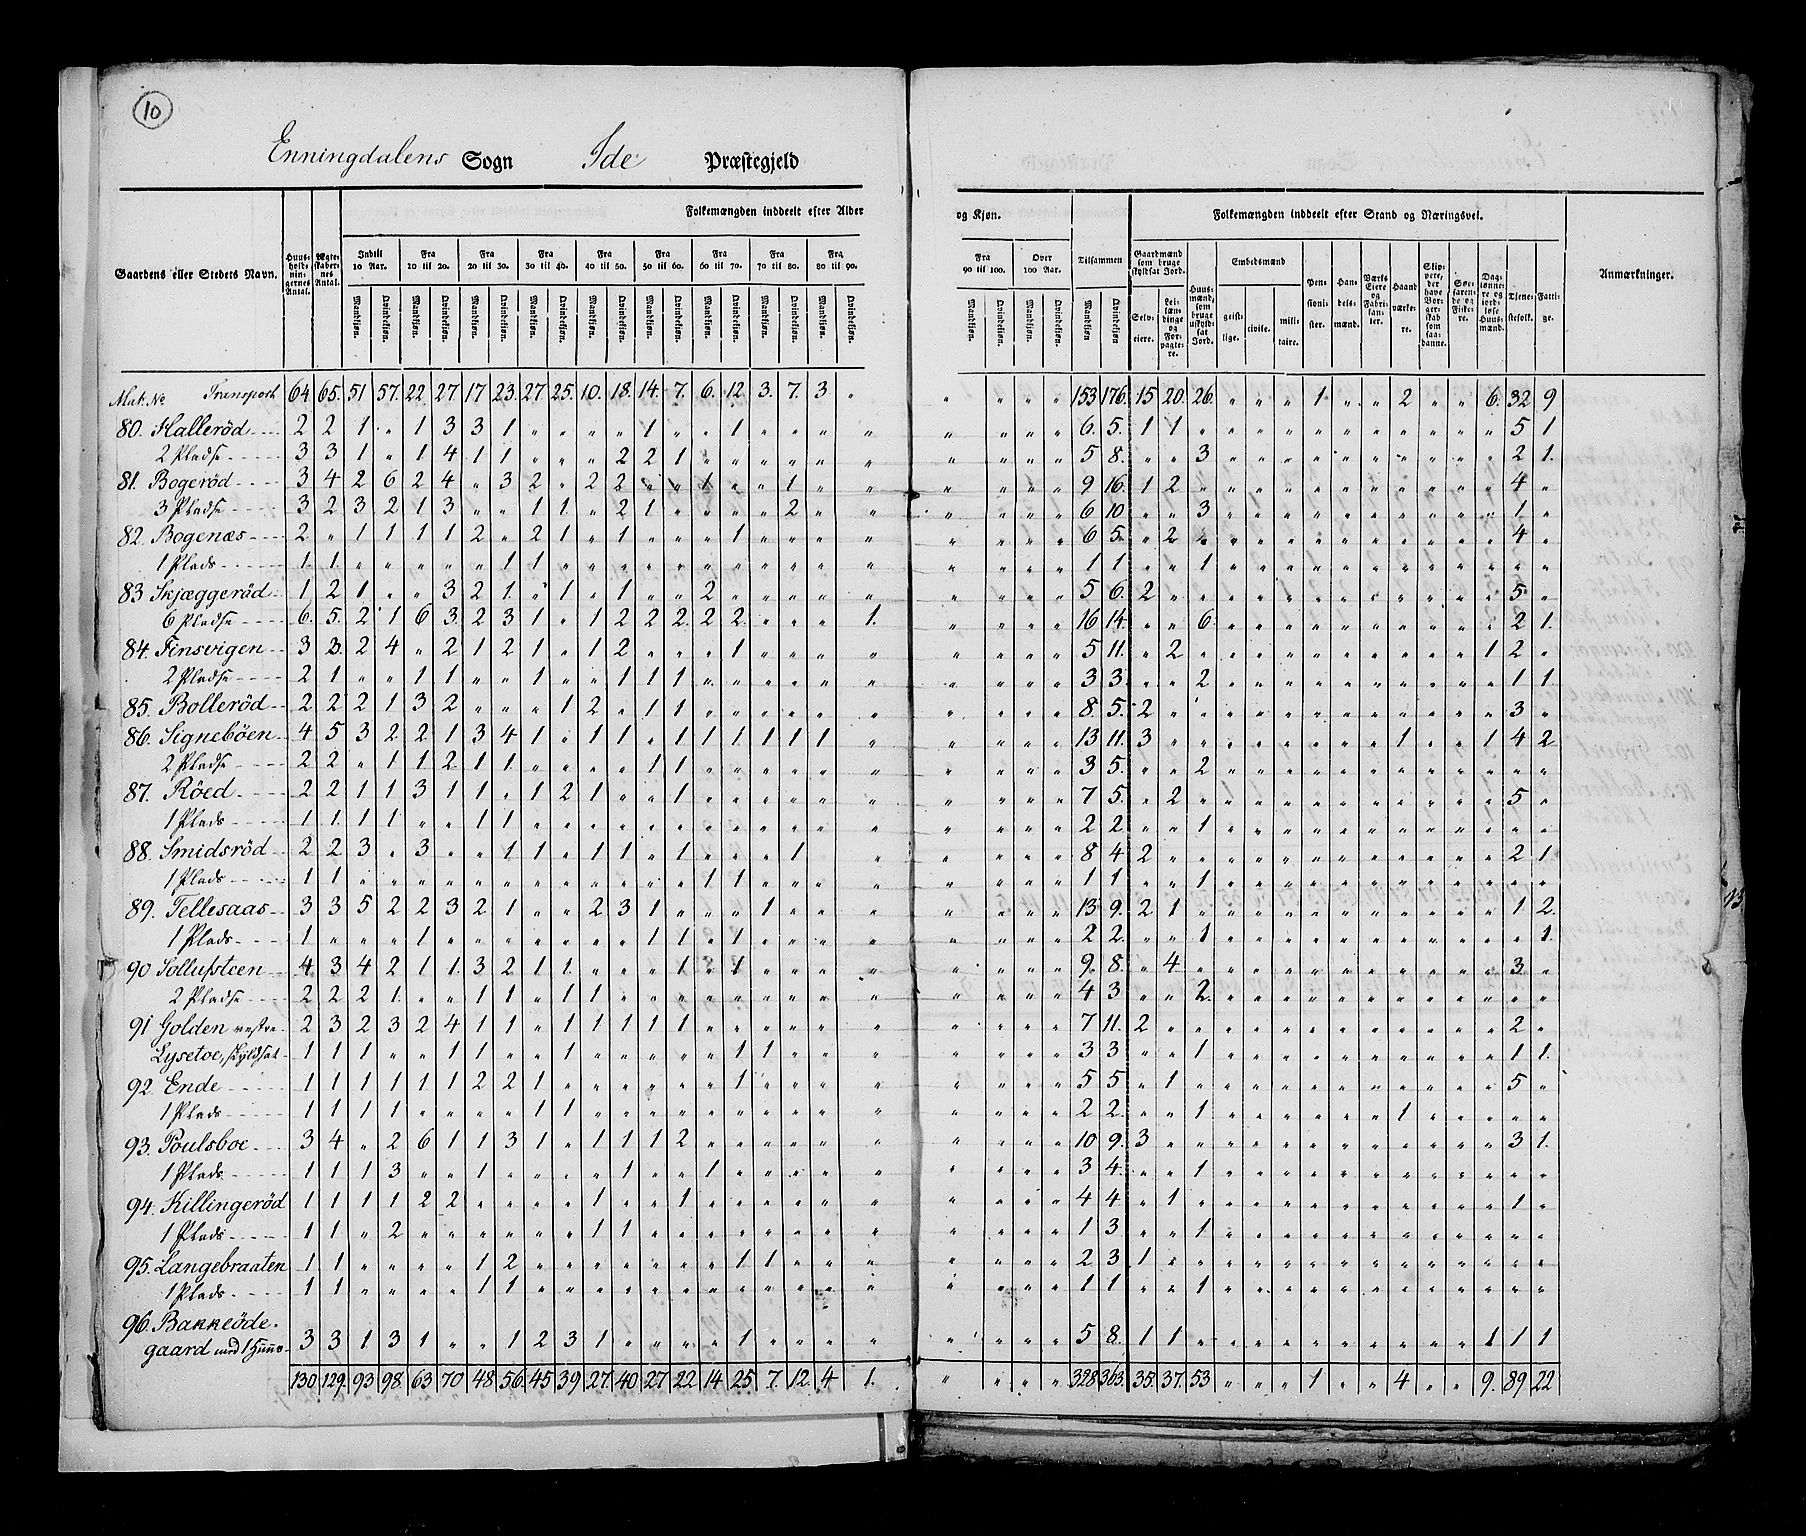 10
Enningdalens Sogn Ide Præstegjeld
Gaardens eller Stedets Navn.
Huus-holdnin-gernes Antal.
Ægte-skabernes Antal.
Folkemængden inddeelt efter Alder og Kjøn.
Indtil 10 Aar. Fra 10 til 20. Fra 20 til 30. Fra 30 til 40. Fra 40 til 50. Fra 50 til 60. Fra 60 til 70. Fra 70 til 80. Fra 80 til 90. Fra 90 til 100. Over 100 Aar. Tilsammen
Mandkjøn. Qvindekjøn.
Folkemængden inddeelt efter Stand og Næringsvei.
Gaardmænd som bruge skyldsat Jord. Selv-eiere. Lei-lændinge og For-pagtere.
Huusmænd, som bruge uskyldsat Jord.
Embedsmænd geist-lige. civile. mili-taire.
Pen-sioni-ster. Han-dels-mænd. Værks Eiere og Fabri-kanter. Haand-værke-re.
Skip-pere, der have Bor-gerskab som saadanne. Søe-farende og Fiskere. Dag-lønnere og jord-løse Huusmænd. Tjene-stefolk. Fatti-ge.
Anmærkninger.
Mat. No Transport 64 65. 51 57. 22 27 17 23. 27 25. 10. 18. 14. 7. 6. 12 3. 7. 3 " " " " " 153 176. 15 20. 26. " " " 1 " " 2 " " 6. 32 9
80. Halleröd 2 2 1 " 1 3 3 1 " " " " 1 " " 1 " " " " " " " " 6. 5. 1 1 " " " " " " " " " " " 5 1
2 Pladse 3 3 1 " 1 4 1 1 " " " 2 2 1 " " " " " " " " " " 5 8. " " 3 " " " " " " " " " " 2 1.
81. Bogeröd 3 4 2 6 2 4 " 3 2 " 2 2 " " 1 " " 1 " " " " " " 9 16. 1 2 " " " " " " " " " " " 4 "
3 Pladse 3 2 3 2 1 3 " " 1 1 " 2 1 " " " " 2 " " " " " " 6 10 " " 3 " " " " " " " " " " 1 "
82. Bogenæs 2 " 1 1 1 1 2 " 2 1 " 1 " " " 1 " " " " " " " " 6 5. " 2 " " " " " " " " " " " 4 "
1 Plads 1. 1. " " " " " 1 1 " " " " " " " " " " " " " " " 1 1 " " 1 " " " " " " " " " " " "
83 Skjæggeröd 1 2 1 " " 3 2 1. " 1 " 1 " " 2 " " " " " " " " " 5 6. 2 " " " " " " " " " " " " 5 "
6 Pladse 6. 5. 2 1 6 3. 2 3 1 " 1 2 2 2. 2 2. " " " 1. " " " " 16 14. " " 6. " " " " " " " " " " 2 1.
84. Finsvigen 3 3. 2 4 " 2 1 2 1 " 1 2 " " " 1 " " " " " " " " 5 11. " 2 " " " " " " " " " " 1 2 "
2 Pladse 2 1 " " 1 1 " " 1 " " 1 1 1 " " " " " " " " " " 3 3. " " 2 " " " " " " " " " " 1 1.
85. Bolleröd 2 2 2 1 3 2 " " " 1 2 " 1 1 " " " " " " " " " " 8. 5. 2 " " " " " " " " " " " " 3 "
86. Signeböen 4 5 3 2 2 1 3 4 1 " 1 1 " 1 1 1 1 1 1 " " " " " 13 11. 3 " " " " " " " " 1 " " 1 4 2
2 Pladse 2 2 " 1 1 2 1 1 " " " " 1 1 " " " " " " " " " " 3 5. " " 2 " " " " " " " " " " " "
87. Röed 2 2 1 1 3 1 1 " 1 2 1 " " 1 " " " " " " " " " " 7 5. " 2 " " " " " " " " " " " 5 "
1 Plads 1 1. 1 1 " " 1 1 " " " " " " " " " " " " " " " " 2 2 " " 1 " " " " " " " " " " " "
88. Smidsröd 2 2 3 " 3 " " 1 1 " 1 1 " 1 " " " 1 " " " " " 8 4 2 " " " " " " " " " " " " 2 1.
1 Plads 1 1 " " " " " " " " " " " " 1 1 " " " " " " " " 1 1 " " 1 " " " " " " " " " " " "
89. Tellesaas 3 3 5 2 2 3 2 1 " " 2 3 1 " " " 1 " " " " " " " 13 9. 2 1 " " " " " " " " " " " 1 2.
1 Plads 1 " " " 1 " " " " " " " 1 1 " 1 " " " " " " " " 2 2 " " 1 " " " " " " " " " " " 1.
90 Sollufsteen 4 3 4 2 1 1. 3 2 1 1. " " " 1 " 1 " " " " " " " " 9. 8. " 4 " " " " " " " " " " " 3 "
2 Pladse 2 2 2 1. " " 1 1 " 1 1 " " " " " " " " " " " " " 4 3 " " 2. " " " " " " " " " " " "
91 Golden vestre 2 3 2 3 2 4 1 1 " 1 1 1 1 1 " " " " " " " " " " 7 11. 2 " " " " " " " " " " " " 2 "
Lysetoe, skyldsat 1 1 1 " " 1 1 " " 1 " " " " " 1 1 " " " " " " " 3 3 " " 1 " " " " " " " " " " 1 1.
92 Ende 1 1 1 1 1 1 2 2 1 " " " " " " 1 " " " " " " " " 5 5 " 1 " " " " " " " " " " " 5 "
1 Plads 1 1 1 1 " " " " 1 1 " " " " " " " " " " " " " " 2 2. " " 1 " " " " " " 1 " " " " "
93. Poulsboe 3 4 " 2 6 1 1 3 1 " 1 1 1 2 " " " " " " " " " " 10 9. 3 " " " " " " " " " " " " 3 1.
1 Plads 1 1 1 3 " " 1 " " " " 1 " " 1 " " " " " " " " " 3 4. " " 1 " " " " " " " " " " " "
94. Killingeröd 1 1 1 1 2 2 " " " " 1 " " 1 " " " " " " " " " " 4 4 " 1 " " " " " " " " " " " 1 "
1 Plads 1 1 " 2 " " " " " " 1 1 " " " " " " " " " " " " 1 3 " " 1 " " " " " " " " " " " "
95. Langebraaten 1 1 " " " " 1 2 " " " " " " " 1 1 " " " " " " " 2 3 1 " " " " " " " " " " " " " "
1 Plads 1 1 " " " " 1 1 " " " " " " " " " " " " " " " " 1 1 " " 1 " " " " " " " " " " " "
96. Bakkeöde-
gaard med 1 Huus 3 3 1 3 1 " " 1 2 3 1 " " " " 1 " " " " " " " " 5 8. 1 1 " " " " " " " " " " 1 1 1
130 129. 93 98. 63 70 48 56 45 39 27 40 27 22 14 25 7. 12 4 1. " " " " 328 363. 35. 37. 53 " " " 1 " " 4 " " 9. 89 22